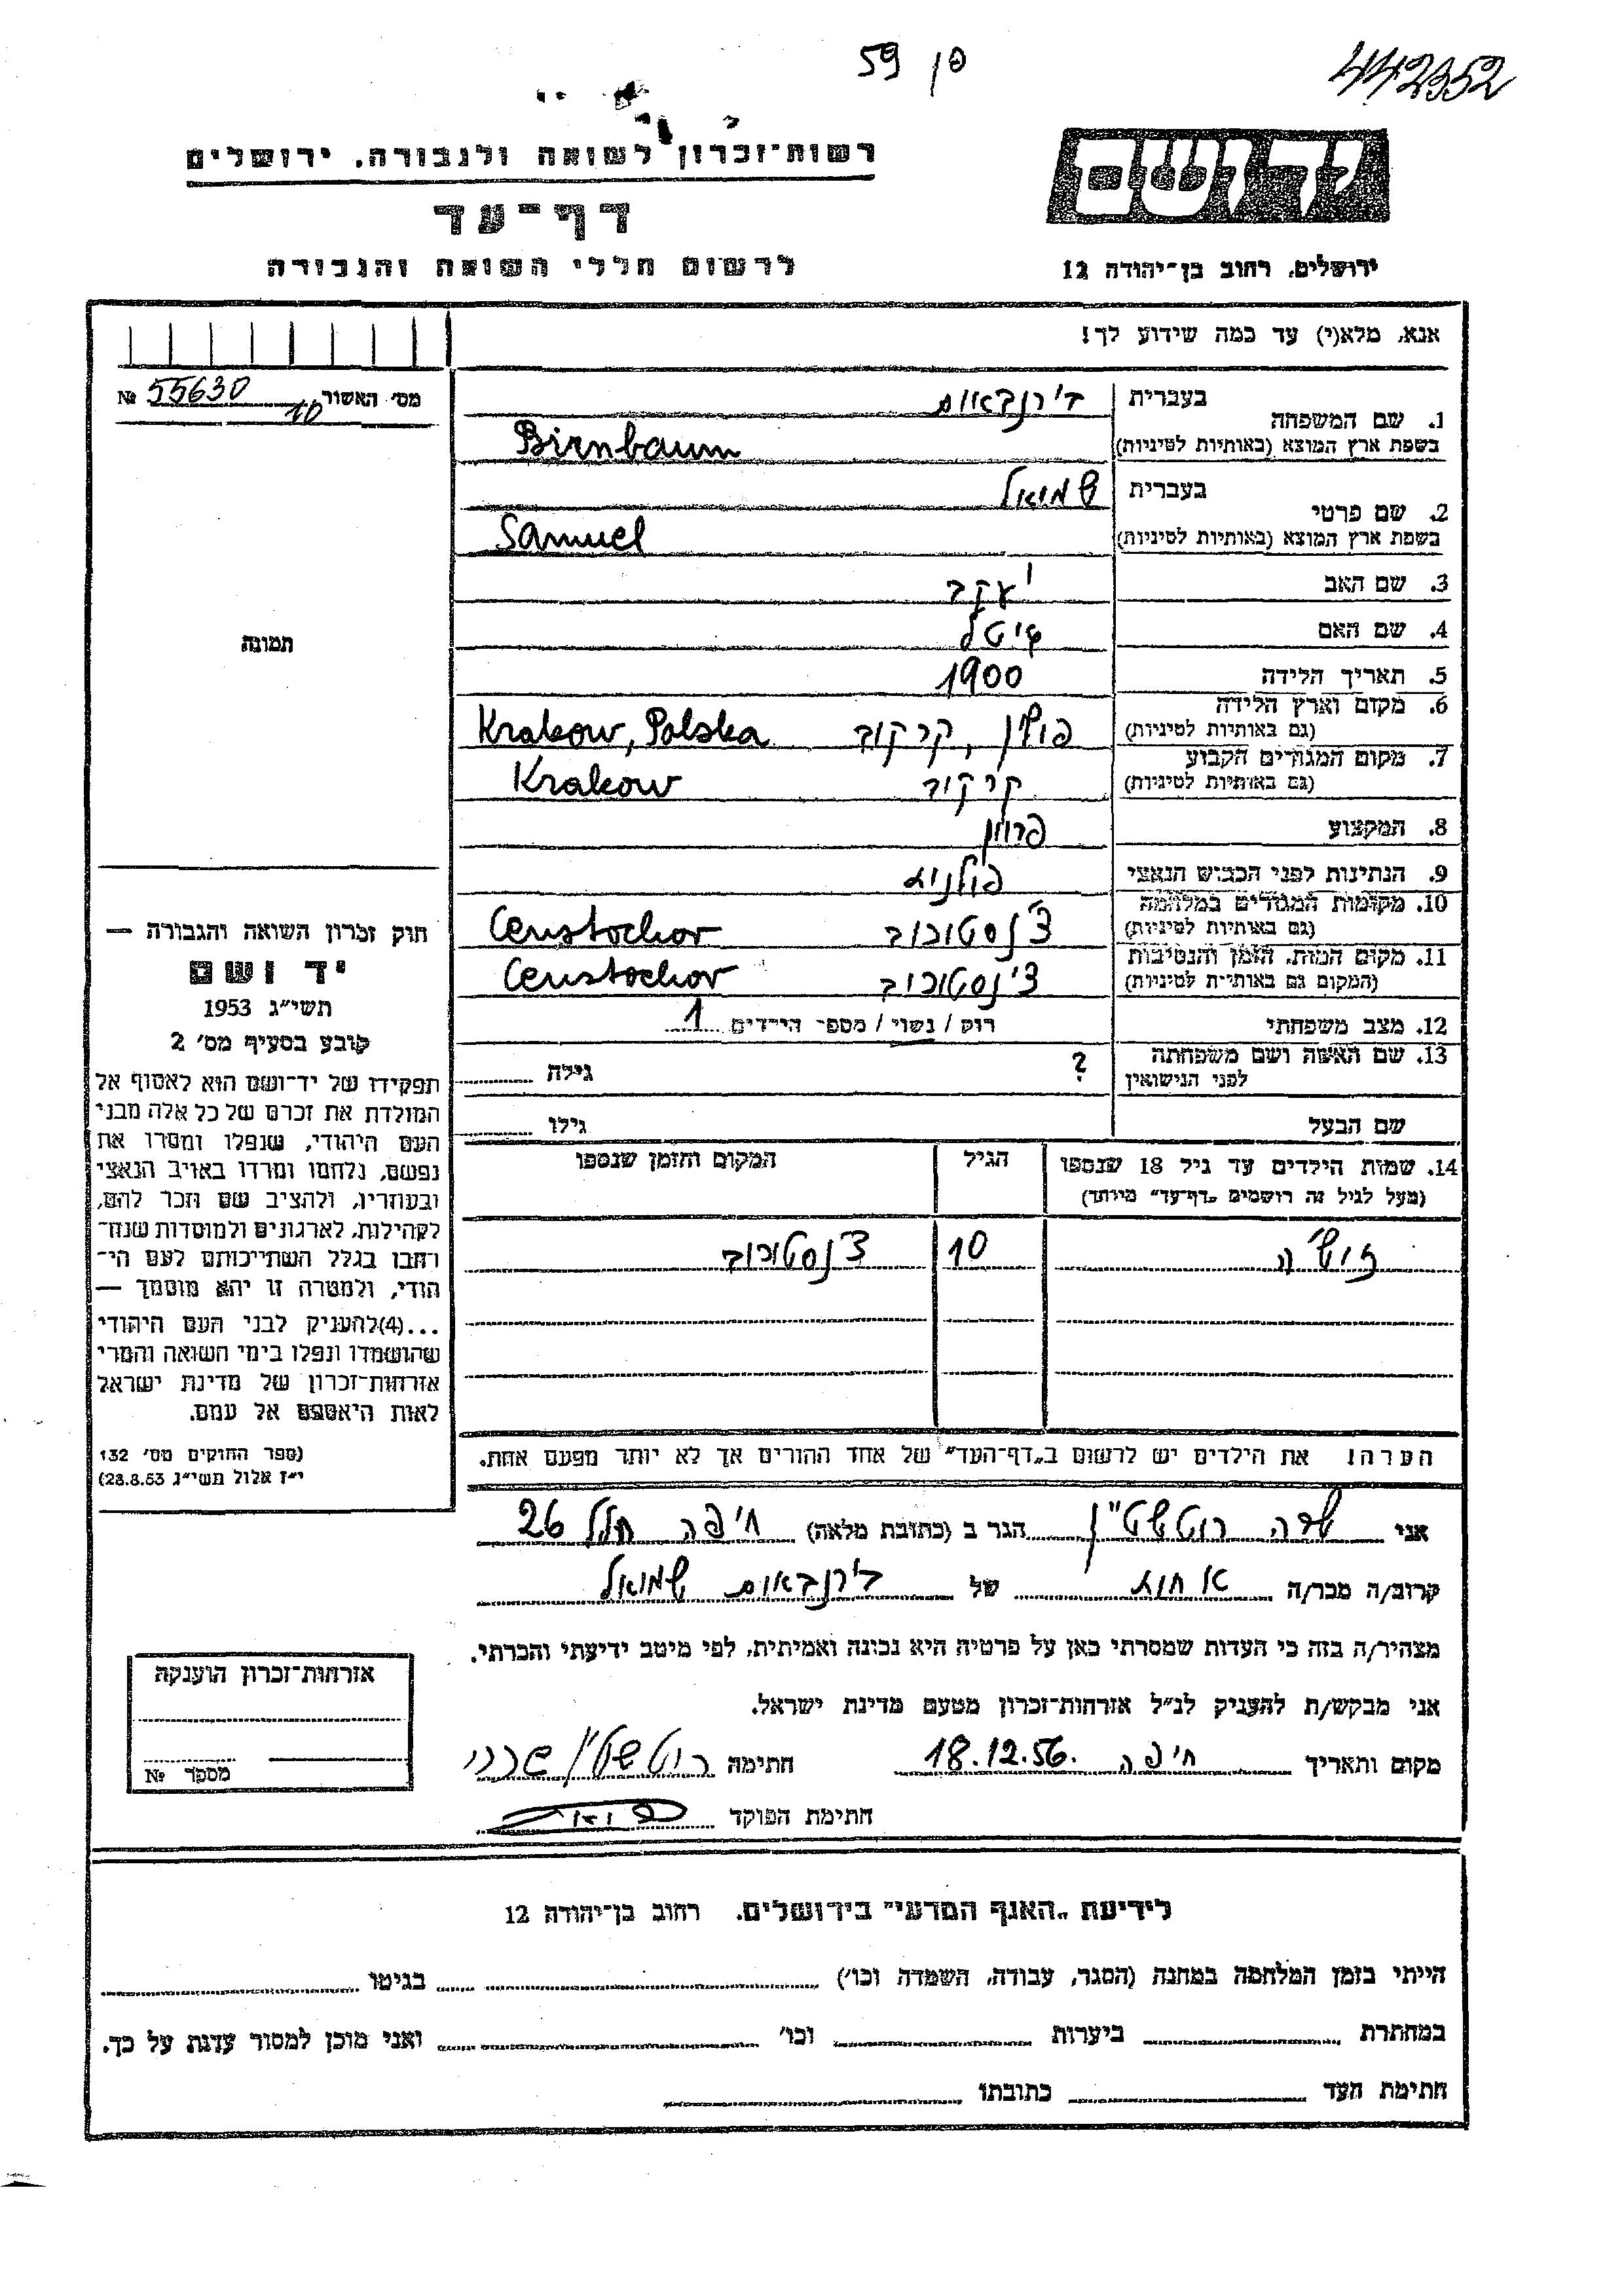 59 פן
442352
רשות־זכרון לשואה ולגבורה. ירושלים
דף־עד
לרשום חללי השואה והגבורה
ידושם
ירושלים, רחוב בן־יהודה 12
אנא, מלא(י) עד כמה שידוע לך!
מס׳ האשור 55630 №
10
1. שם המשפחה
בעברית בירנבאום
בשפת ארץ המוצא (באותיות לטיניות) Birnbaum
2. שם פרטי
בעברית שמואל
בשפת ארץ המוצא (באותיות לטיניות) Samuel
3. שם האב יעקב
4. שם האם
5. תאריך הלידה 1900
6. מקום וארץ הלידה
(גם באותיות לטיניות) פולין, קרקוב Krakow, Polska
7. מקום המגורים הקבוע
(גם באותיות לטיניות) קרקוב Krakow
8. המקצוע פרוון
9. הנתינות לפני הכבוש הנאצי פולנית
10. מקומות המגורים במלחמה
(גם באותיות לטיניות) צ׳נסטוכוב Censtochov
11. מקום המות, הזמן והנסיבות
(המקום גם באותיות לטיניות) צ׳נסטוכוב Censtochov
12. מצב משפחתי רוק / נשוי / מספר הילדים 1
13. שם האשה ושם משפחתה ? גילה
לפני הנישואין
שם הבעל גילו
14. שמות הילדים עד גיל 18 שנספו הגיל המקום והזמן שנספו
(מעל לגיל זה רושמים „דף־עד״ מיוחד)
10 צ׳נסטוכוב
הערה! את הילדים יש לרשום ב„דף־העד״ של אחד ההורים אך לא יותר מפעם אחת.
תמונה
חוק זכרון השואה והגבורה —
יד ושם
תשי״ג 1953
קובע בסעיף מס׳ 2
תפקידו של יד־ושם הוא לאסוף אל
המולדת את זכרם של כל אלה מבני
העם היהודי, שנפלו ומסרו את
נפשם, נלחמו ומרדו באויב הנאצי
ובעוזריו, ולהציב שם וזכר להם,
לקהילות, לארגונים ולמוסדות שנח־
רבו בגלל השתייכותם לעם הי־
הודי, ולמטרה זו יהא מוסמך —
...(4)להעניק לבני העם היהודי
שהושמדו ונפלו בימי השואה והמרי
אזרחות־זכרון של מדינת ישראל
לאות היאספם אל עמם.
(ספר החוקים מס׳ 132
י״ז אלול תשי״ג 28.8.53)
אני שרה רוטשטיין הגר ב (כתובת מלאה) חיפה חלל 26
קרוב/ה מכר/ה אחות של בירנבאום שמואל
מצהיר/ה בזה כי העדות שמסרתי כאן על פרטיה היא נכונה ואמיתית, לפי מיטב ידיעתי והכרתי.
אני מבקש/ת להעניק לנ״ל אזרחות־זכרון מטעם מדינת ישראל.
מקום ותאריך חיפה 18.12.56. חתימה רוטשטיין
חתימת הפוקד
אזרחות־זכרון הוענקה
מספר №
לידיעת „האגף המדעי״ בירושלים. רחוב בן־יהודה 12
הייתי בזמן המלחמה במחנה (הסגר, עבודה, השמדה וכו׳) בגיטו
במחתרת ביערות וכו׳ ואני מוכן למסור עדות על כך.
חתימת העד כתובתו